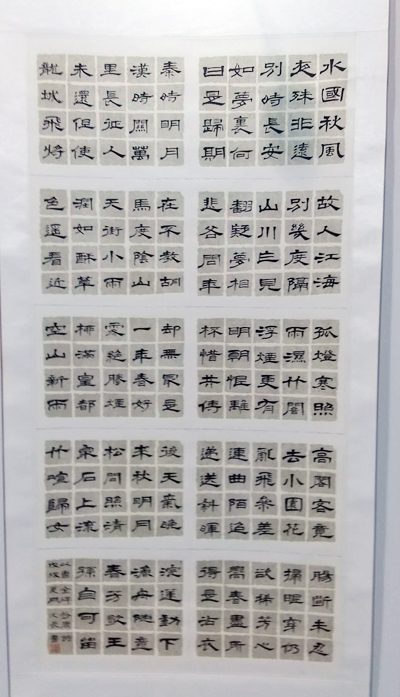 水國秋風
夜殊非遠
別時長安
如夢裏何
日是歸期
故人江海
別幾度隔
山川乍見
翻疑夢相
悲各問年
孤燈寒照
雨濕竹閣
浮煙更有
明朝恨離
杯惜共傳
高閣客竟
去小園花
亂飛參差
連曲陌迢
遞送斜暉
腸斷未忍
掃眼穿仍
欲稀芳心
嚮春盡所
得是沾衣
秦時明月
漢時關萬
里長征人
未還但使
龍城飛將
在不教胡
馬度陰山
天街小雨
潤如酥草
色遥看近
却無最是
一年春好
處絕勝煙
柳滿皇都
空山新雨
後天氣晚
來秋明月
松間照清
泉石上流
竹喧歸女
浣蓮動下
漁舟隨意
春芳歇王
孫自可留